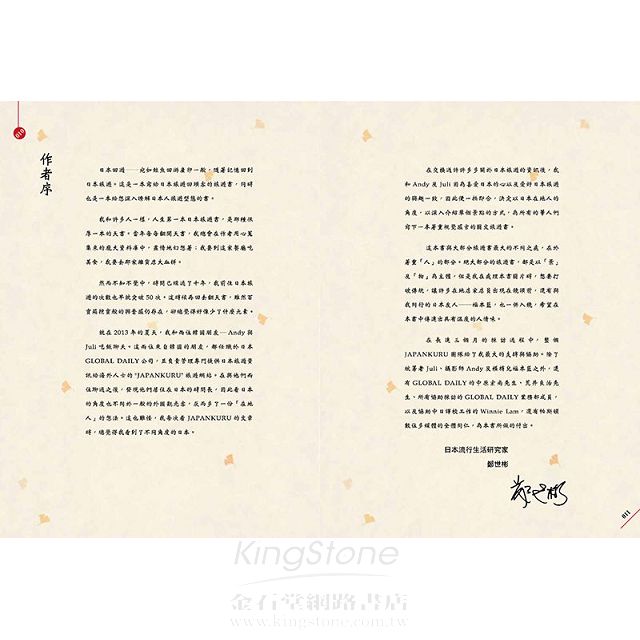 010
作者序
日本回遊——宛如鮭魚回游產卵一般，隨著記憶回到
日本旅遊。這是一本寫給日本旅遊回頭客的旅遊書，同時
也是一本給想深入瞭解日本人旅遊型態的書。
我和許多人一樣，人生第一本日本旅遊書，是那種很
厚一本的天書。當年每每翻開天書，我總會在作者用心蒐
集來的龐大資料庫中，盡情地幻想著：我要到這家餐廳吃
美食，我要去那家雜貨店大血拼。
然而不知不覺中，時間已經過了十年，我前往日本旅
遊的次數也早就突破 50 次。這時候再回去翻天書，雖然百
寶箱挖寶般的興奮感仍存在，卻總覺得好像少了什麼元素。
就在 2013 年的夏天，我和兩位韓國朋友——Andy 與
Juli 吃飯聊天。這兩位來自韓國的朋友，都任職於日本
GLOBAL DAILY 公司，並負責管理專門提供日本旅遊資
訊給海外人士的"JAPANKURU"旅遊網站。在與他們兩
位聊過之後，發現他們居住在日本的時間長，因此看日本
的角度也不同於一般的外國觀光客，反而多了一份「在地
人」的想法。這也難怪，我每次看 JAPANKURU 的文章
時，總覺得我看到了不同角度的日本。
在交換過許許多多關於日本旅遊的資訊後，我
和 Andy 及 Juli 因為喜愛日本的心以及愛好日本旅遊
的興趣一致，因此便一拍即合，決定以日本在地人的
角度，以深入介紹某個景點的方式，為所有的華人們
寫下一本著重視覺感官的圖文旅遊書。
這本書與大部分旅遊書最大的不同之處，在於
著重「人」的部分。絕大部分的旅遊書，都是以「景」
及「物」為主體，但是我在處理本書圖片時，想要打
破傳統，讓許多在地店家店員出現在鏡頭前，還有與
我同行的日本友人——福本藍，也一併入鏡，希望在
本書中傳達出具有溫度的人情味。
在長達三個月的採訪過程中，整個
JAPANKURU 團隊給了我最大的支持與協助。除了
統籌者 Juli、攝影師 Andy 及模特兒福本藍之外，還
有 GLOBAL DAILY 的中原宏尚先生、荒井良治先
生、所有協助採訪的 GLOBAL DAILY 業務部成員，
以及協助中日課校工作的 Winnie Lam，還有帕斯頓
數位多媒體的全體同仁，為本書所做的付出。
日本流行生活研究家
鄭世彬
鄭世彬
011
KingStone
金石堂網路書店
www.kingstone.com.tw